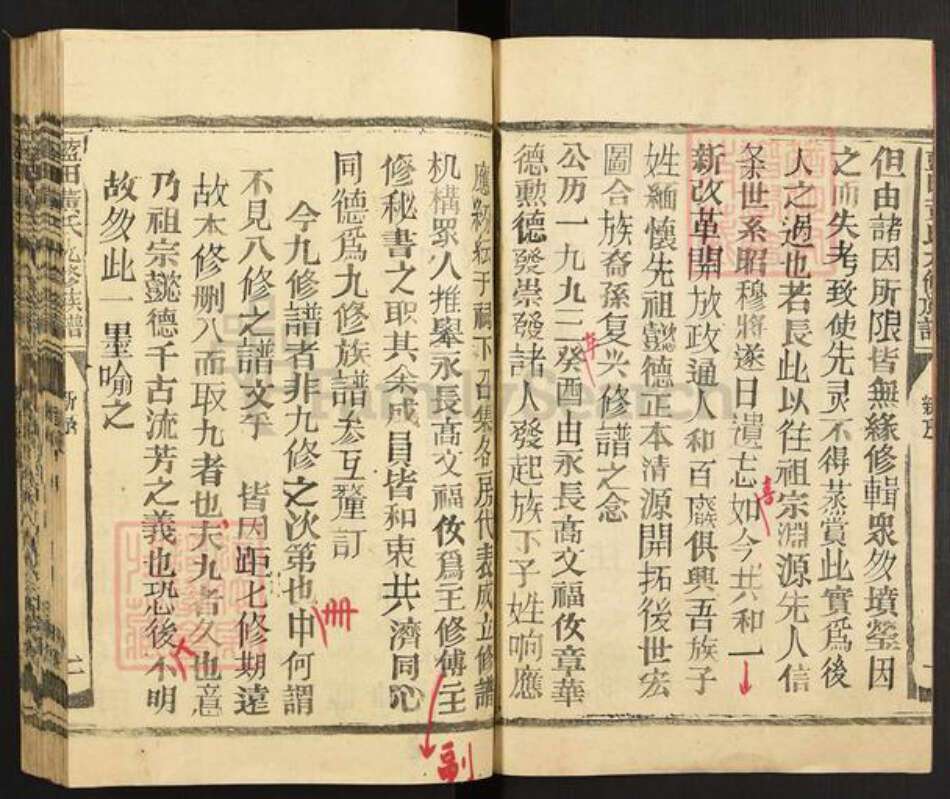 但由諸因所限皆無緣修輯衆多墳塋因
之而失考致使先灵不得蒸賞此實爲後
人之過也若長此以往祖宗淵源先人信
条世系昭穆將遂日潰忘如今共和一
喜
新改革開放政通人和百廢俱興吾族子
姓緬懷先祖懿德正本清源開拓後世宏
圖合族裔孫复兴修譜之念
公历一九九三癸酉由永長高文福攸章華
年
德勲德發崇發諸人發起族下子姓响應
應紛紜于祠下召集各房代表成立修譜
机構眾人推舉永長高文福攸爲王修傅主
副
修秘書之职其余成員皆和衷共濟同心
同德爲九修族譜参互釐訂
今九修譜者非九修之次第也申何謂
冊
不見八修之譜文乎 皆因距七修期遠
故本修刪八而取九者也夫九者久也意
乃祖宗懿德千古流芳之義也恐後不明
人
故多此一墨喻之
藍田黃氏九修族譜 新序
FamilySearch